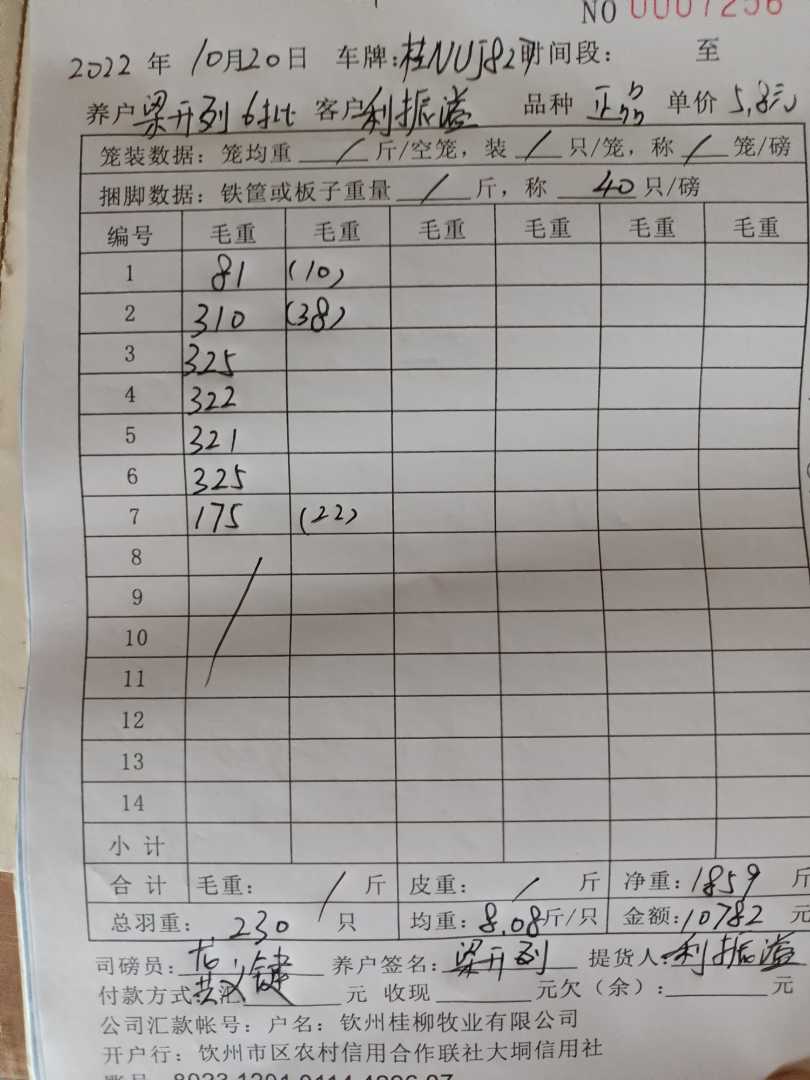 NO 0007256
2022 年 10月20日 车牌:桂NUJ827 时间段: 至
养户 梁开列 6批 客户 利振溢 品种 正品 单价 5.8元
笼装数据: 笼均重 / 斤/空笼, 装 / 只/笼, 称 / 笼/磅
捆脚数据: 铁筐或板子重量 / 斤, 称 40 只/磅
编号 毛重 毛重 毛重 毛重 毛重 毛重
1 81 (10)
2 310 (38)
3 325
4 322
5 321
6 325
7 175 (22)
8
9
10
11
12
13
14
小 计
合 计 毛重: / 斤 皮重: / 斤 净重: 1859 斤
总羽重: 230 只 均重: 8.08斤/只 金额: 10782 元
司磅员: 养户签名: 梁开列 提货人: 利振溢
付款方式: 汇 元 收现 元欠(余): 元
公司汇款帐号: 户名: 钦州桂柳牧业有限公司
开户行: 钦州市区农村信用合作联社大垌信用社